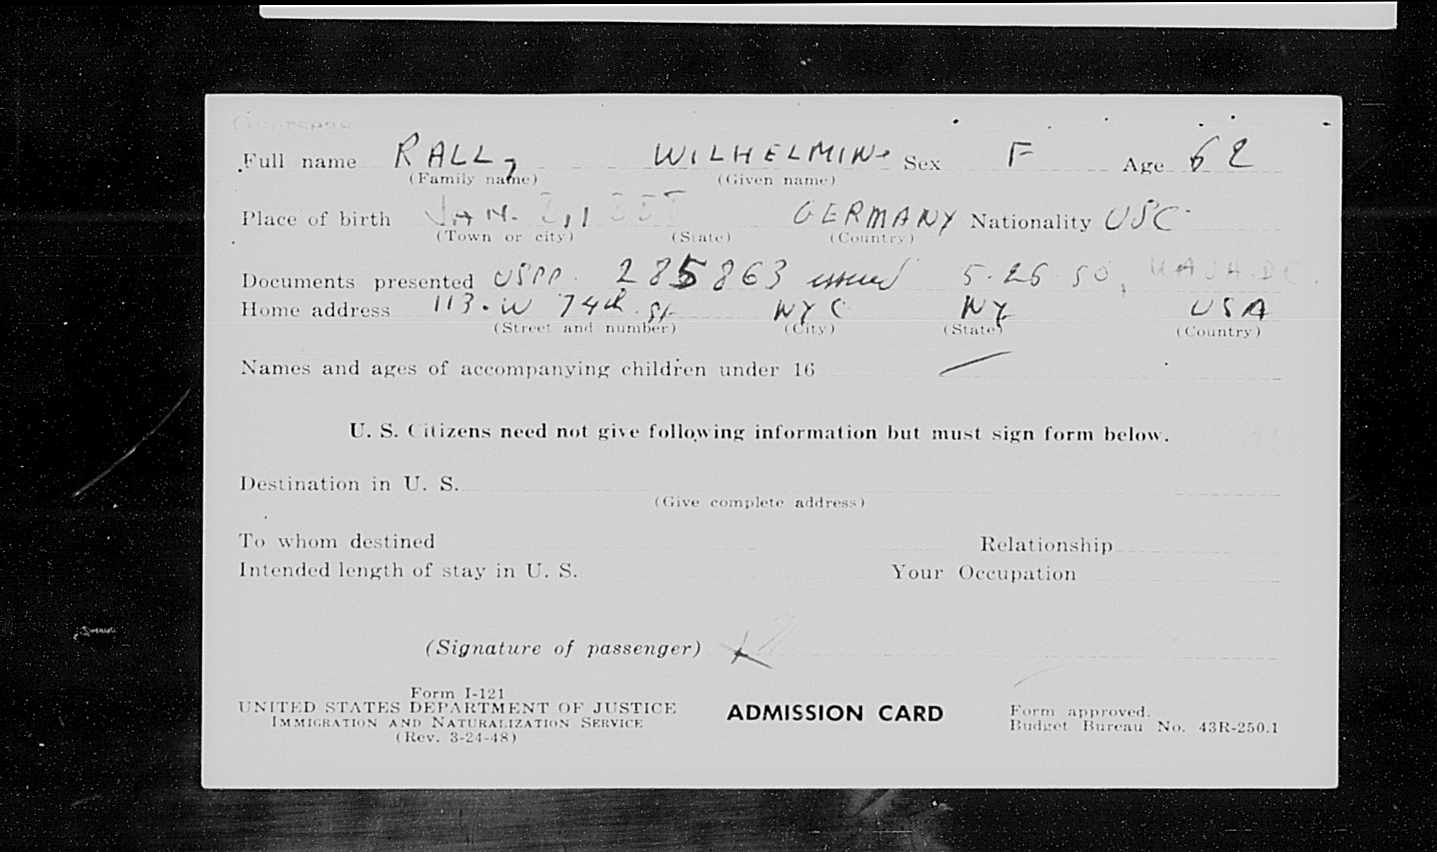 Full name RALL, WILHELMIN Sex F Age 62
(Family name) (Given name)
Place of birth JAN. GERMANY Nationality USC
(Town or city) (State) (Country)
Documents presented USPP. 285863 issued 5.26.50, WASH.DC.
Home address 113. W 74th St NYC NY USA
(Street and number) (City) (State) (Country)
Names and ages of accompanying children under 16 —
U. S. Citizens need not give following information but must sign form below.
Destination in U. S.
(Give complete address)
To whom destined Relationship
Intended length of stay in U. S. Your Occupation
(Signature of passenger)
Form I-121
UNITED STATES DEPARTMENT OF JUSTICE
IMMIGRATION AND NATURALIZATION SERVICE
(Rev. 3-24-48)
ADMISSION CARD
Form approved.
Budget Bureau No. 43R-250.1